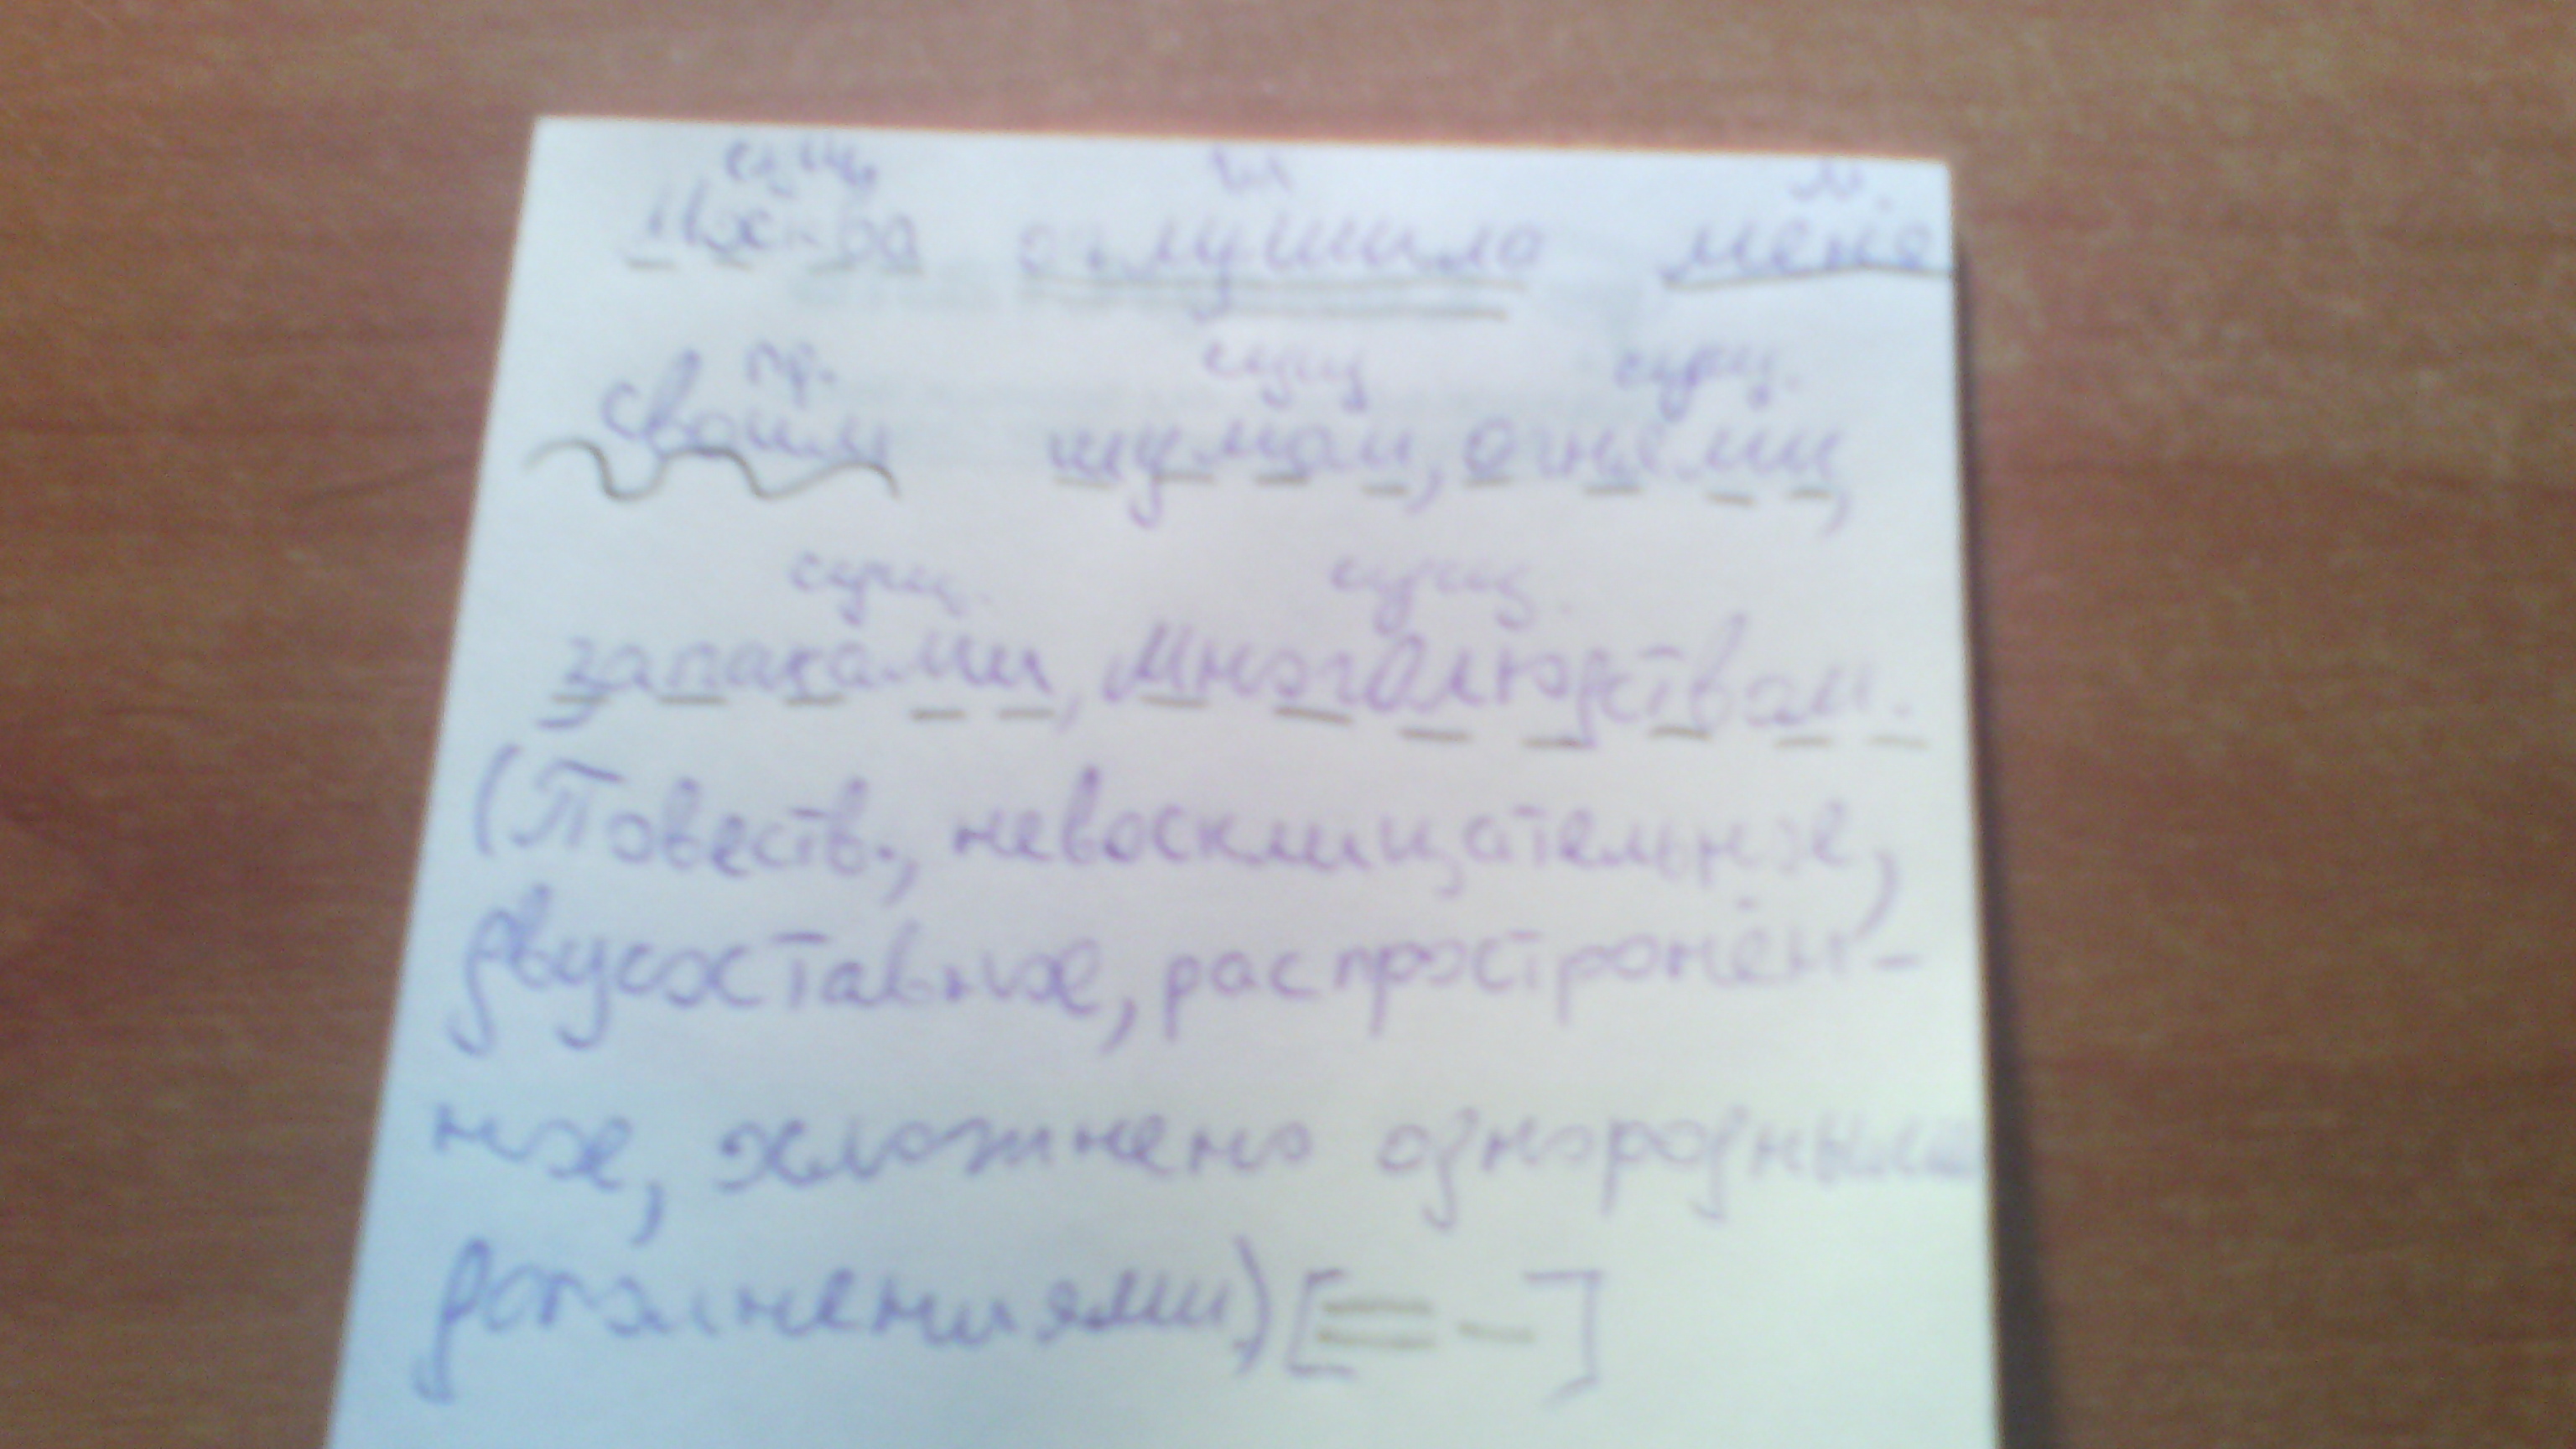 сущ. гл м.
оглушило мене
пр. сущ сущ.
своим шумам, огнеми,
сущ. сущ.
запахами, многолюдствам.
(Повеств., невосклицательное,
двусоставное, распростронён-
ное, осложнено однородными
дополнениями) [= -]